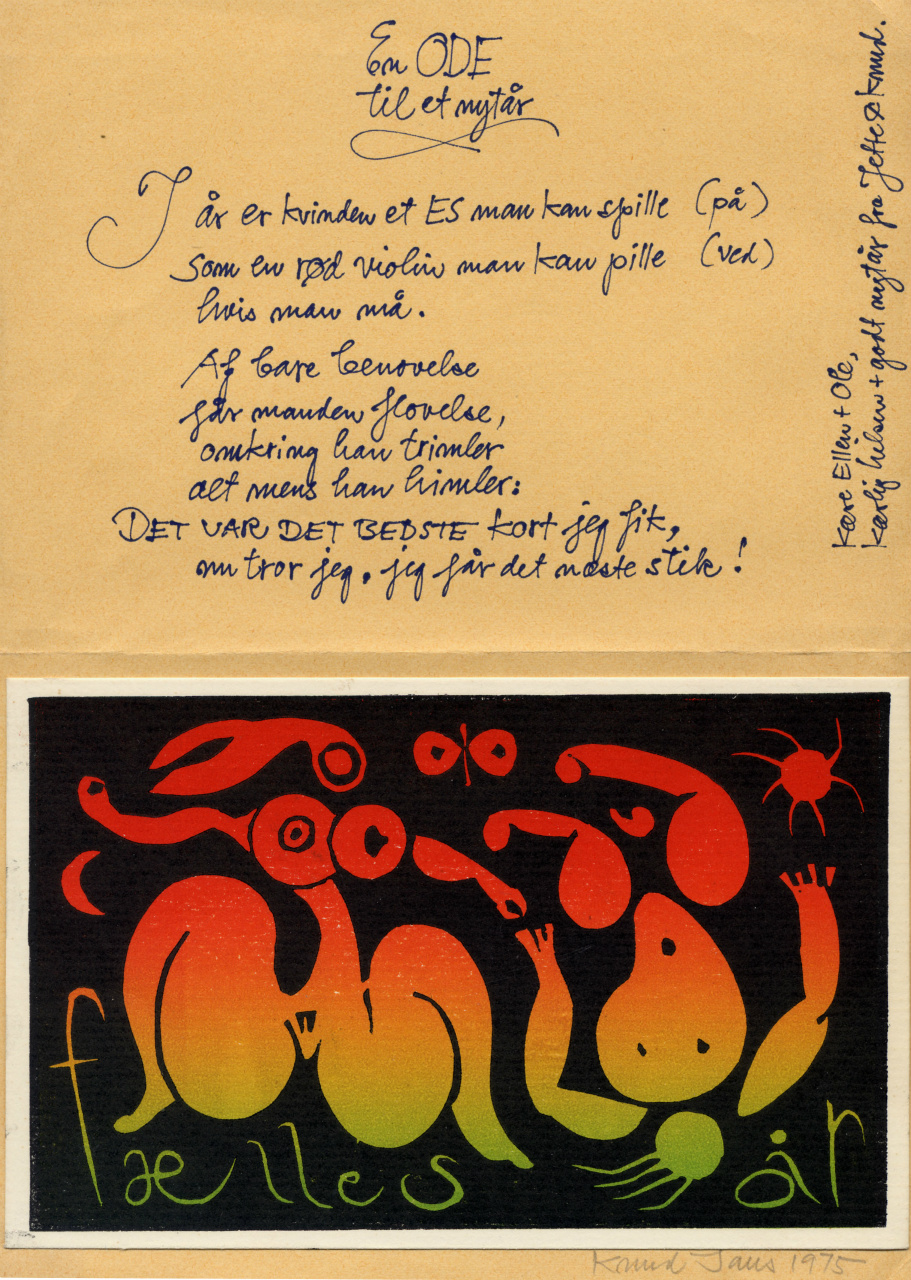 En ODE
til et nytår
I år er kvinden et ES man kan spille (på)
som en rød violin man kan pille (ved)
hvis man må.
Af bare benovelse
får manden flovelse,
omkring han trimler
alt mens han himler:
DET VAR DET BEDSTE kort jeg fik,
nu tror jeg, jeg får det næste stik!
Kære Ellen + Ole,
Kærlig hilsen + godt nytår fra Jette & Knud.
fælles år
Knud Jans 1975